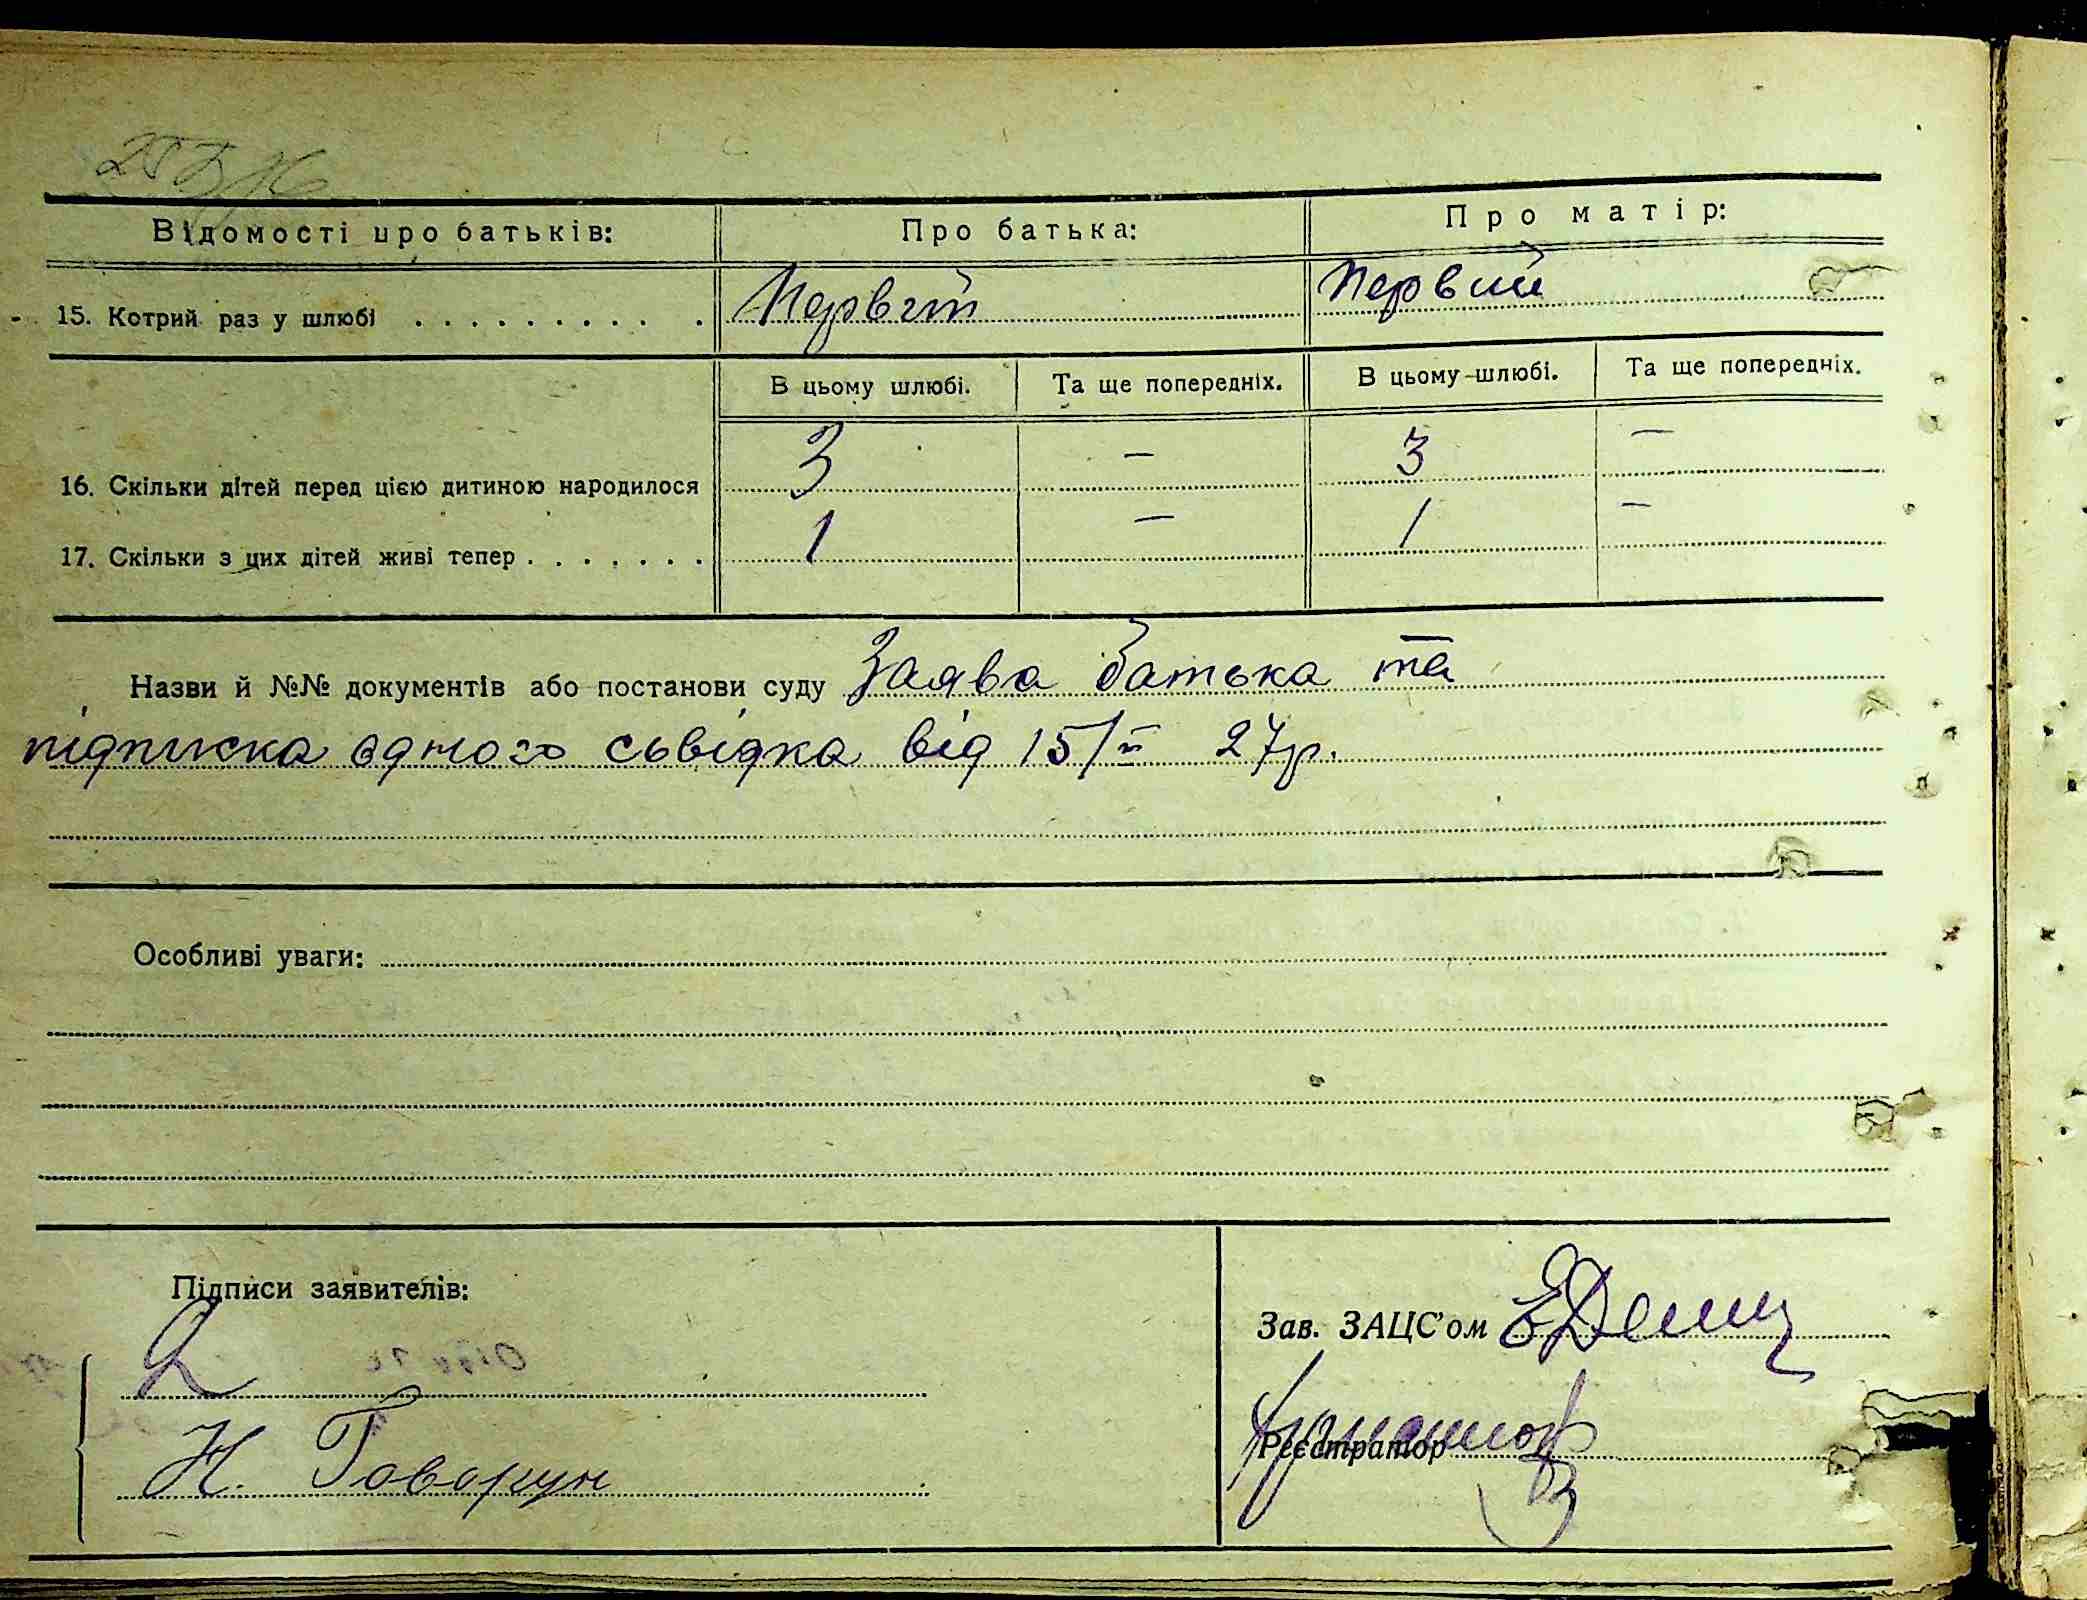 Відомості про батьків: Про батька: Про матір:
15. Котрий раз у шлюбі . . . . . . . . . . Первий Первий
В цьому шлюбі. Та ще попередніх. В цьому шлюбі. Та ще попередніх.
16. Скільки дітей перед цією дитиною народилося 3 — 3 —
17. Скільки з цих дітей живі тепер . . . . . . . 1 — 1 —
Назви й №№ документів або постанови суду Заява батька та
підписка одного сьвідка від 15/ 27р.
Особливі уваги:
Підписи заявителів:
Зав. ЗАЦС'ом
Н. Говорун Реєстратор